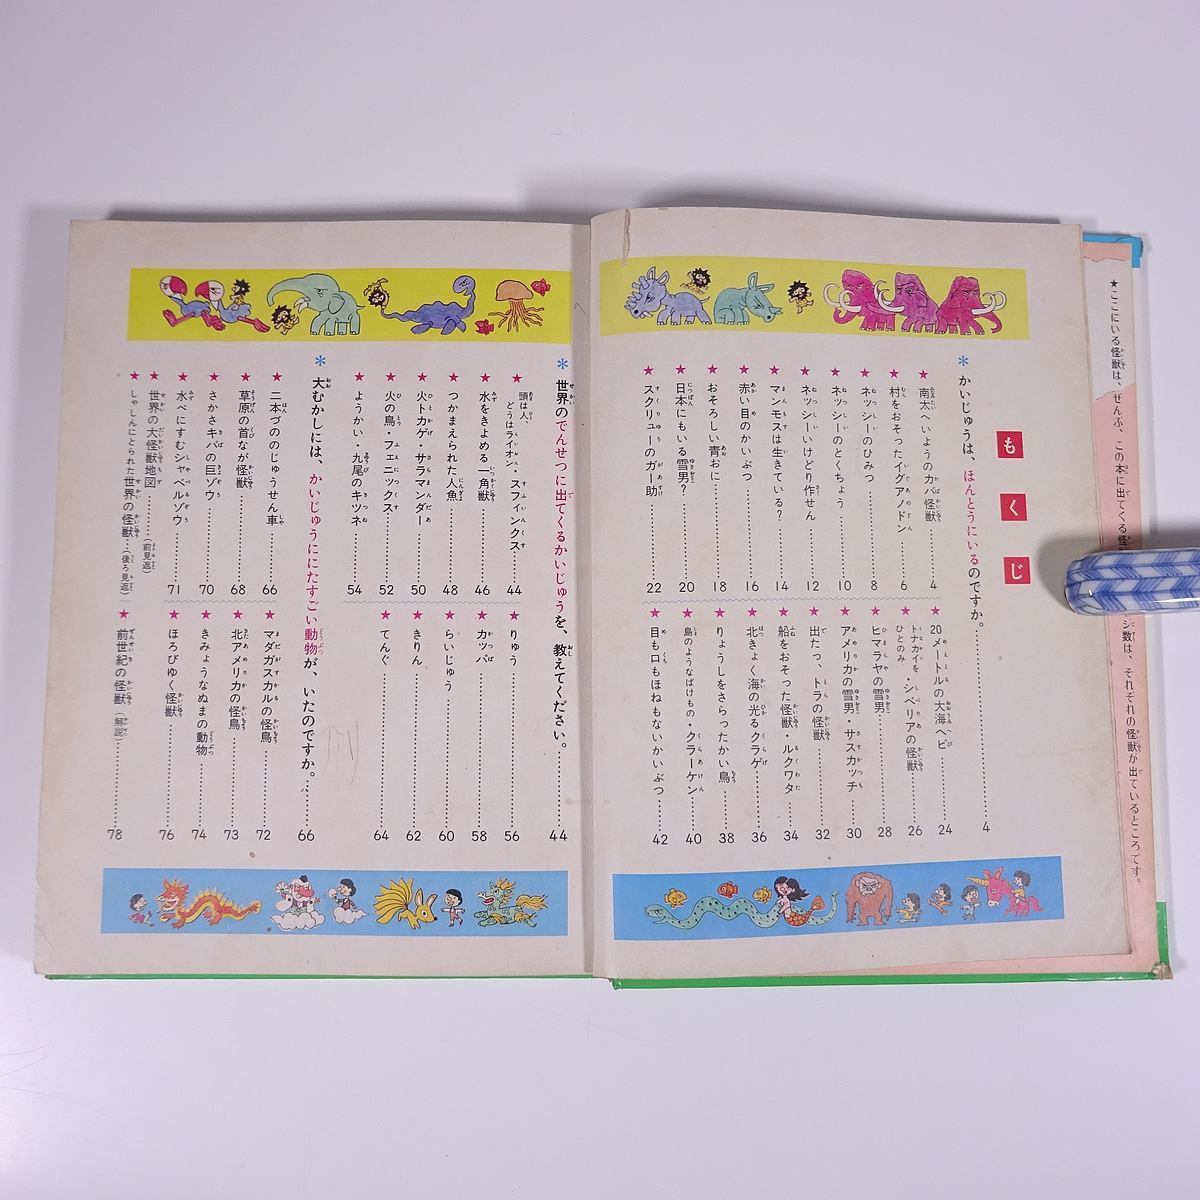 ★ここにいる怪獣は、ぜんぶ、この本に出てくる怪
ジ数は、それぞれの怪獣が出ているところです。
もくじ
*かいじゅうは、ほんとうにいるのですか。 4
★南太へいようのカバ怪獣 4
★村をおそったイグアノドン 6
★ネッシーのひみつ 8
★ネッシーのとくちょう 10
★ネッシーいけどり作せん 12
★マンモスは生きている? 14
★赤い目のかいぶつ 16
★おそろしい青おに 18
★日本にもいる雪男? 20
★スクリューのガー助 22
★20メートルの大海ヘビ 24
★トナカイをひとのみ・シベリアの怪獣 26
★ヒマラヤの雪男 28
★アメリカの雪男・サスカッチ 30
★出たっ、トラの怪獣 32
★船をおそった怪獣・ルクワタ 34
★北きょく海の光るクラゲ 36
★りょうしをさらったかい鳥 38
★島のようなばけもの・クラーケン 40
★目も口もほねもないかいぶつ 42
*世界のでんせつに出てくるかいじゅうを、教えてください。 44
★頭は人、どうはライオン・スフィンクス 44
★水をきよめる一角獣 46
★つかまえられた人魚 48
★火トカゲ・サラマンダー 50
★火の鳥・フェニックス 52
★ようかい・九尾のキツネ 54
★りゅう 56
★カッパ 58
★らいじゅう 60
★きりん 62
★てんぐ 64
*大むかしには、かいじゅうににたすごい動物が、いたのですか。 66
★二本づののじゅうせん車 66
★草原の首なが怪獣 68
★さかさキバの巨ゾウ 70
★水べにすむシャベルゾウ 71
★世界の大怪獣地図(前見返)
★しゃしんにとられた世界の怪獣(後ろ見返)
★マダガスカルの怪鳥 72
★北アメリカの怪鳥 73
★きみょうなぬまの動物 74
★ほろびゆく怪獣 76
★前世紀の怪獣(解説) 78